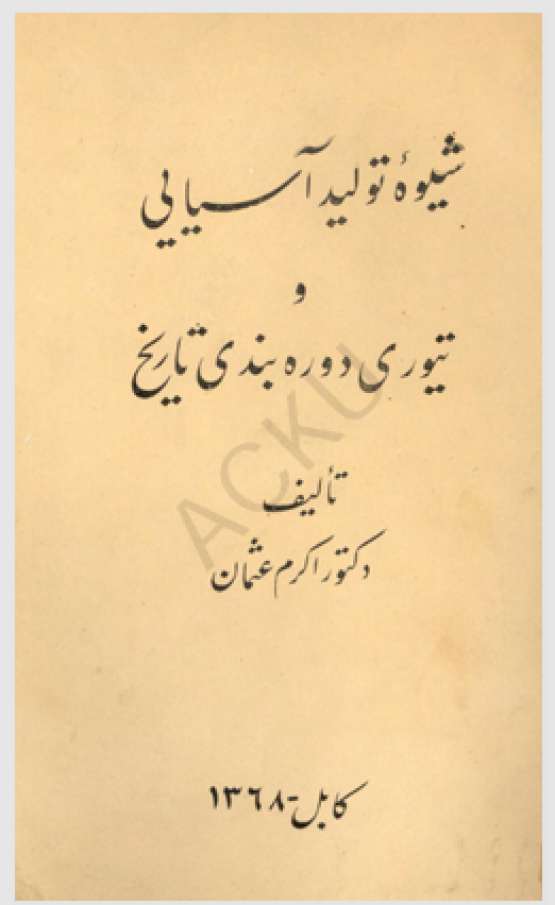 شیوهٔ تولید آسیایی
و
تیوری دوره بندی تاریخ
تألیف
دکتور اکرم عثمان
کابل-۱۳۶۸
ACKU